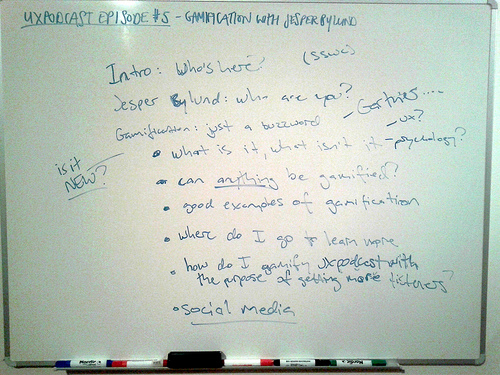 UXPODCAST EPISODE #5 - GAMIFICATION WITH JESPER BYLUND
Intro: Who's here? (SSWC)
Jesper Bylund: who are you?
Gamification: just a buzzword - Gartner....
is it NEW?
• what is it, what isn't it - UX? - psychology?
• can anything be gamified?
• good examples of gamification
• where do I go to learn more
• how do I gamify UXpodcast with
the purpose of getting more listeners?
• social media